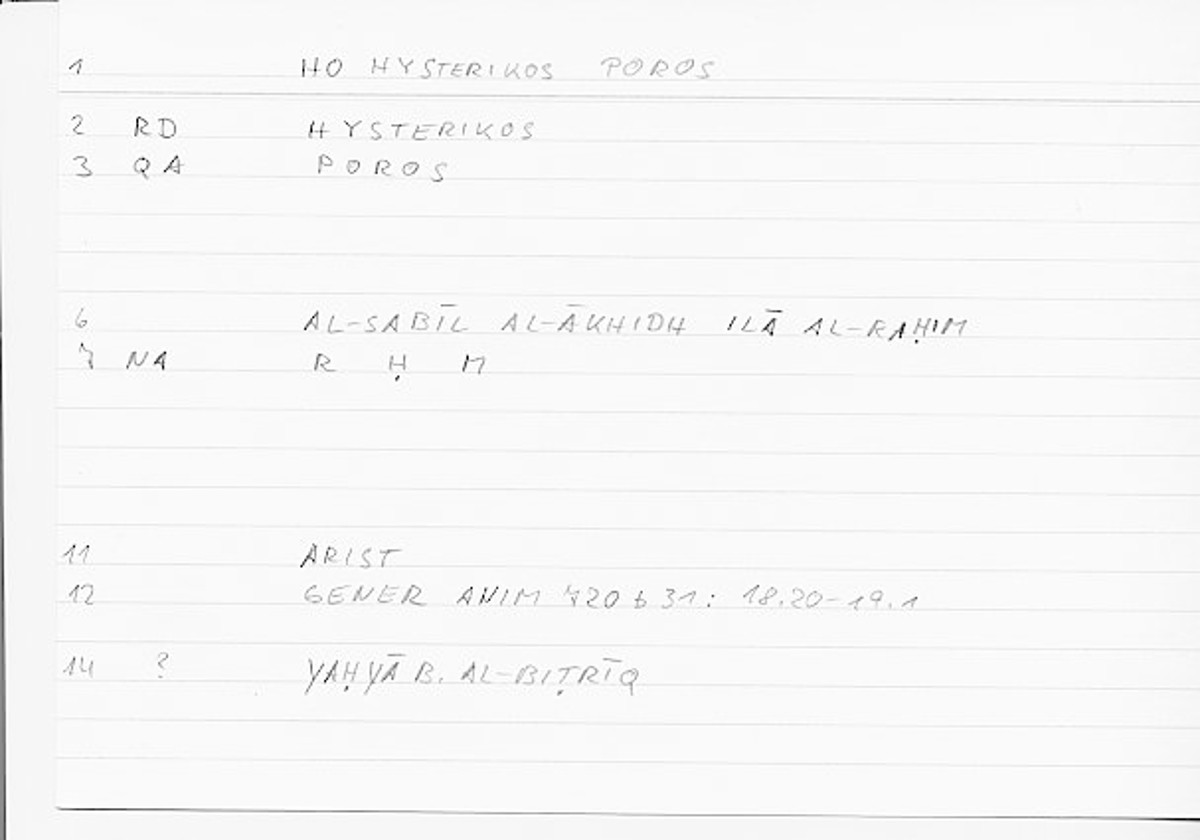 1 HO HYSTERIKOS POROS
2 RD HYSTERIKOS
3 QA POROS
6 AL-SABĪL AL-ĀKHIDH ILĀ AL-RAḤIM
7 NA R Ḥ M
11 ARIST
12 GENER ANIM 720 b 31: 18.20-19.1
14 ? YAḤYĀ B. AL-BIṬRĪQ